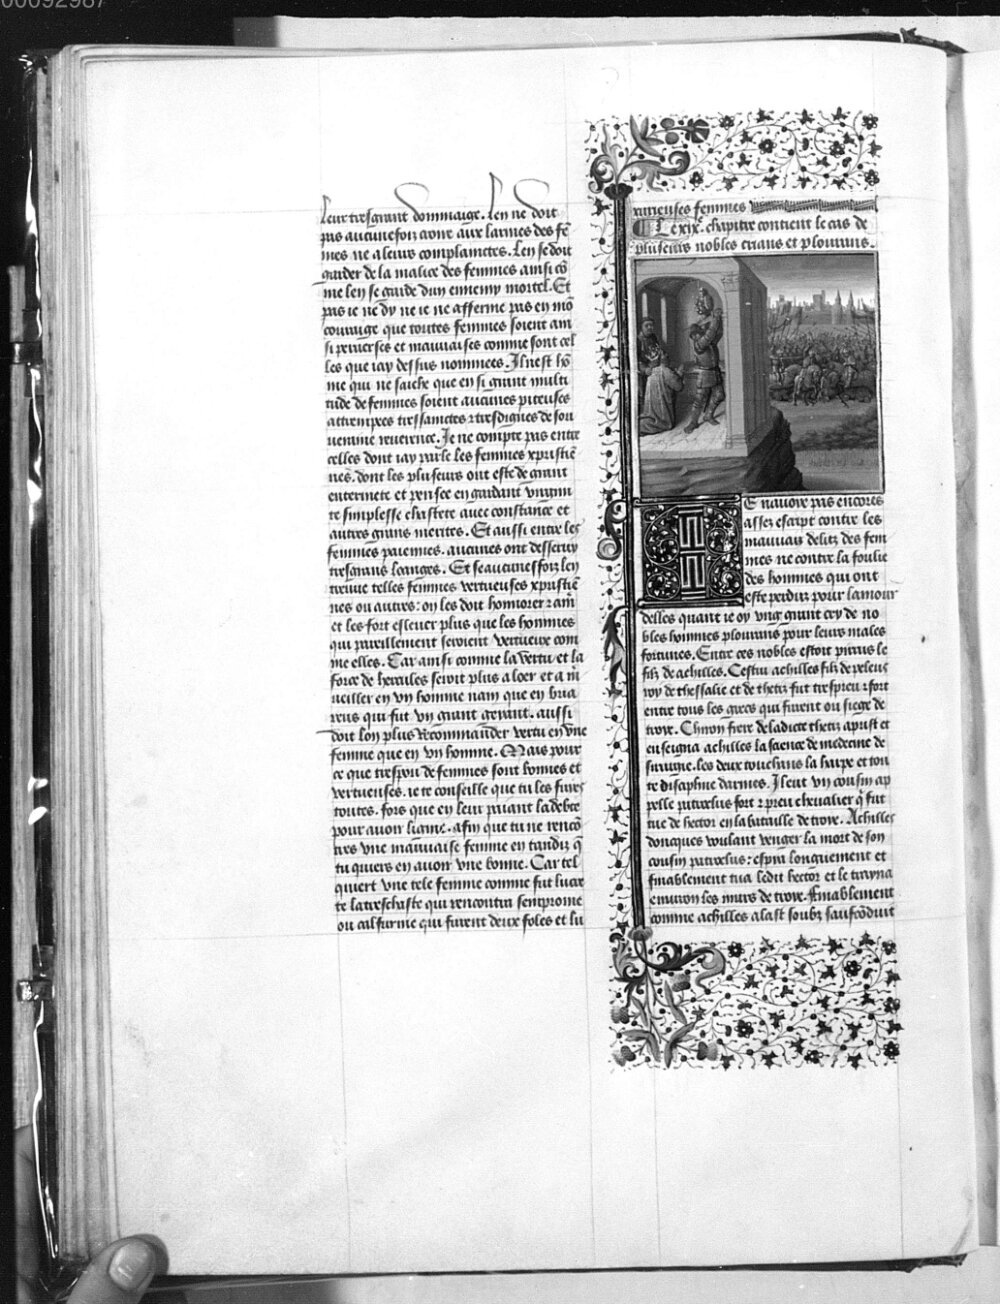 00092987
leur tresgrant dommaige. len ne doit
pas aucunefoiz croire aux larmes des fē
mes ne a leurs complainctes. Len se doit
garder de la malice des femmes ainsi cō
me len se garde dun ennemy mortel. Et
pas ie ne dy ne ie ne afferme pas en mō
couraige que toutes femmes soient ain
si peruerses et mauuaises comme sont cel
les que iay dessus nommees. Il nest hō
me qui ne saiche que en si grant multi
tude de femmes soient aucunes piteuses
attrempees tressainctes ⁊ tresdignes de sou
ueraine reuerence. Je ne compte pas entre
celles dont iay parle les femmes xpistiē
nes. dont les plusieurs ont este de grant
entermete et pensee en gardant virgini
te simplesse chastete auec constance et
autres grans merites. Et aussi entre les
femmes paiennes. aucunes ont desseruy
tresgrans loanges. Et se aucunesfoiz len
treuue telles femmes vertueuses xpistiē
nes ou autres: on les doit honnorer ⁊ aim̄
et les fort esleuer plus que les hommes
qui pareillement seroient vertueux com
me elles. Car ainsi comme la vertu et la
force de hercules seroit plus a loer et a m̄
ueiller en vn homme nain que en bria
reus qui fut vn grant geant. aussi
doit lon plus recommander vertu en vne
femme que en vn homme. Mais pour
ce que trespou de femmes sont bonnes et
vertueuses. ie te conseille que tu les fuies
toutes. fors que en leur paiant la debte
pour auoir lignie. afin que tu ne rencō
tres vne mauuaise femme en tandiz q̄
tu quiers en auoir vne bonne. Car tel
quiert vne tele femme comme fut lucre
te la treschaste qui rencontra sempronie
ou calfurnie qui furent deux foles et lu
xurieuses femmes
Le xix.e chapitre contient le cas de
plusieurs nobles crians et plourans.
E n auoye pas encores
assez escript contre les
mauuais deliz des fem
mes ne contre la foulie
des hommes qui ont
este perduz pour lamour
delles quant ie oy vng grant cry de no
bles hommes plourans pour leurs males
fortunes. Entre ces nobles estoit pirrus le
filz de achilles. Cestui achilles filz de peleus
roy de thessalie et de thetis fut trespreu ⁊ fort
entre tous les grecs qui furent ou siege de
troye. Chiron frere de ladicte thetis aprist et
enseigna achilles la science de medecine de
sirurgie. les deux touchans la harpe et tou
te discipline darmes. Il eut vn cousin ap
pelle patroclus fort ⁊ preu cheualier q̄ fut
tue de hector en la bataille de troye. Achilles
doncques voulant venger la mort de son
cousin patroclus: espia longuement et
finablement tua ledit hector et le trayna
enuiron les murs de troye. Finablement
comme achilles alast soubz saufcōduit